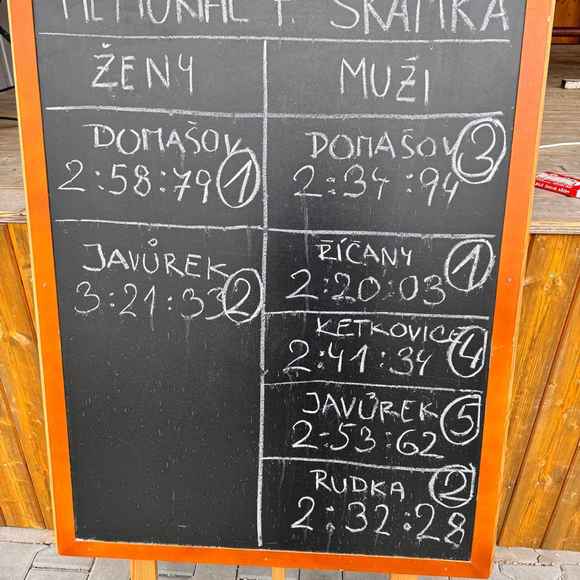 MEMORIÁL F. ŠKAMKA
ŽENY
DOMAŠOV
2:58:79 1
JAVŮREK
3:21:33 2
MUŽI
DOMAŠOV 3
2:34:94
ŘÍČANY 1
2:20:03
KETKOVICE 4
2:41:34
JAVŮREK 5
2:53:62
RUDKA 2
2:32:28